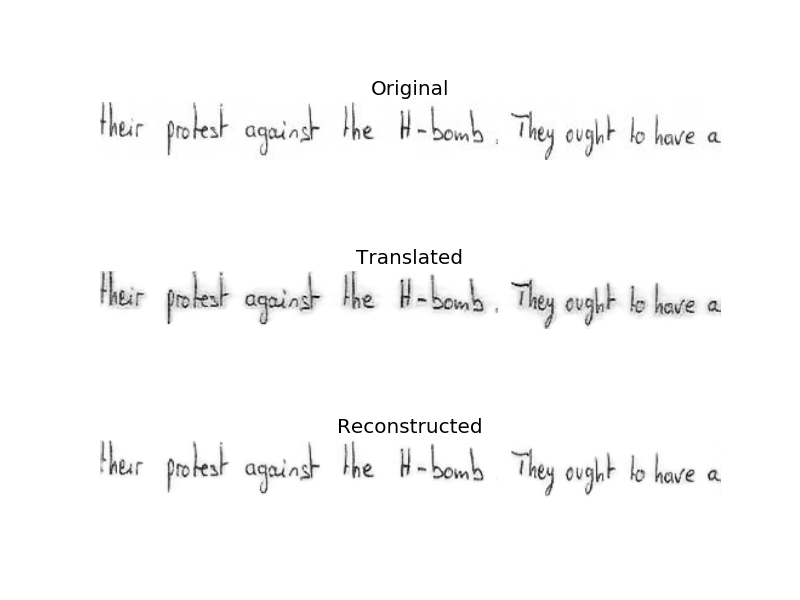 Original
their protest against the H-bomb. They ought to have a
Translated
their protest against the H-bomb. They ought to have a
Reconstructed
their protest against the H-bomb They ought to have a